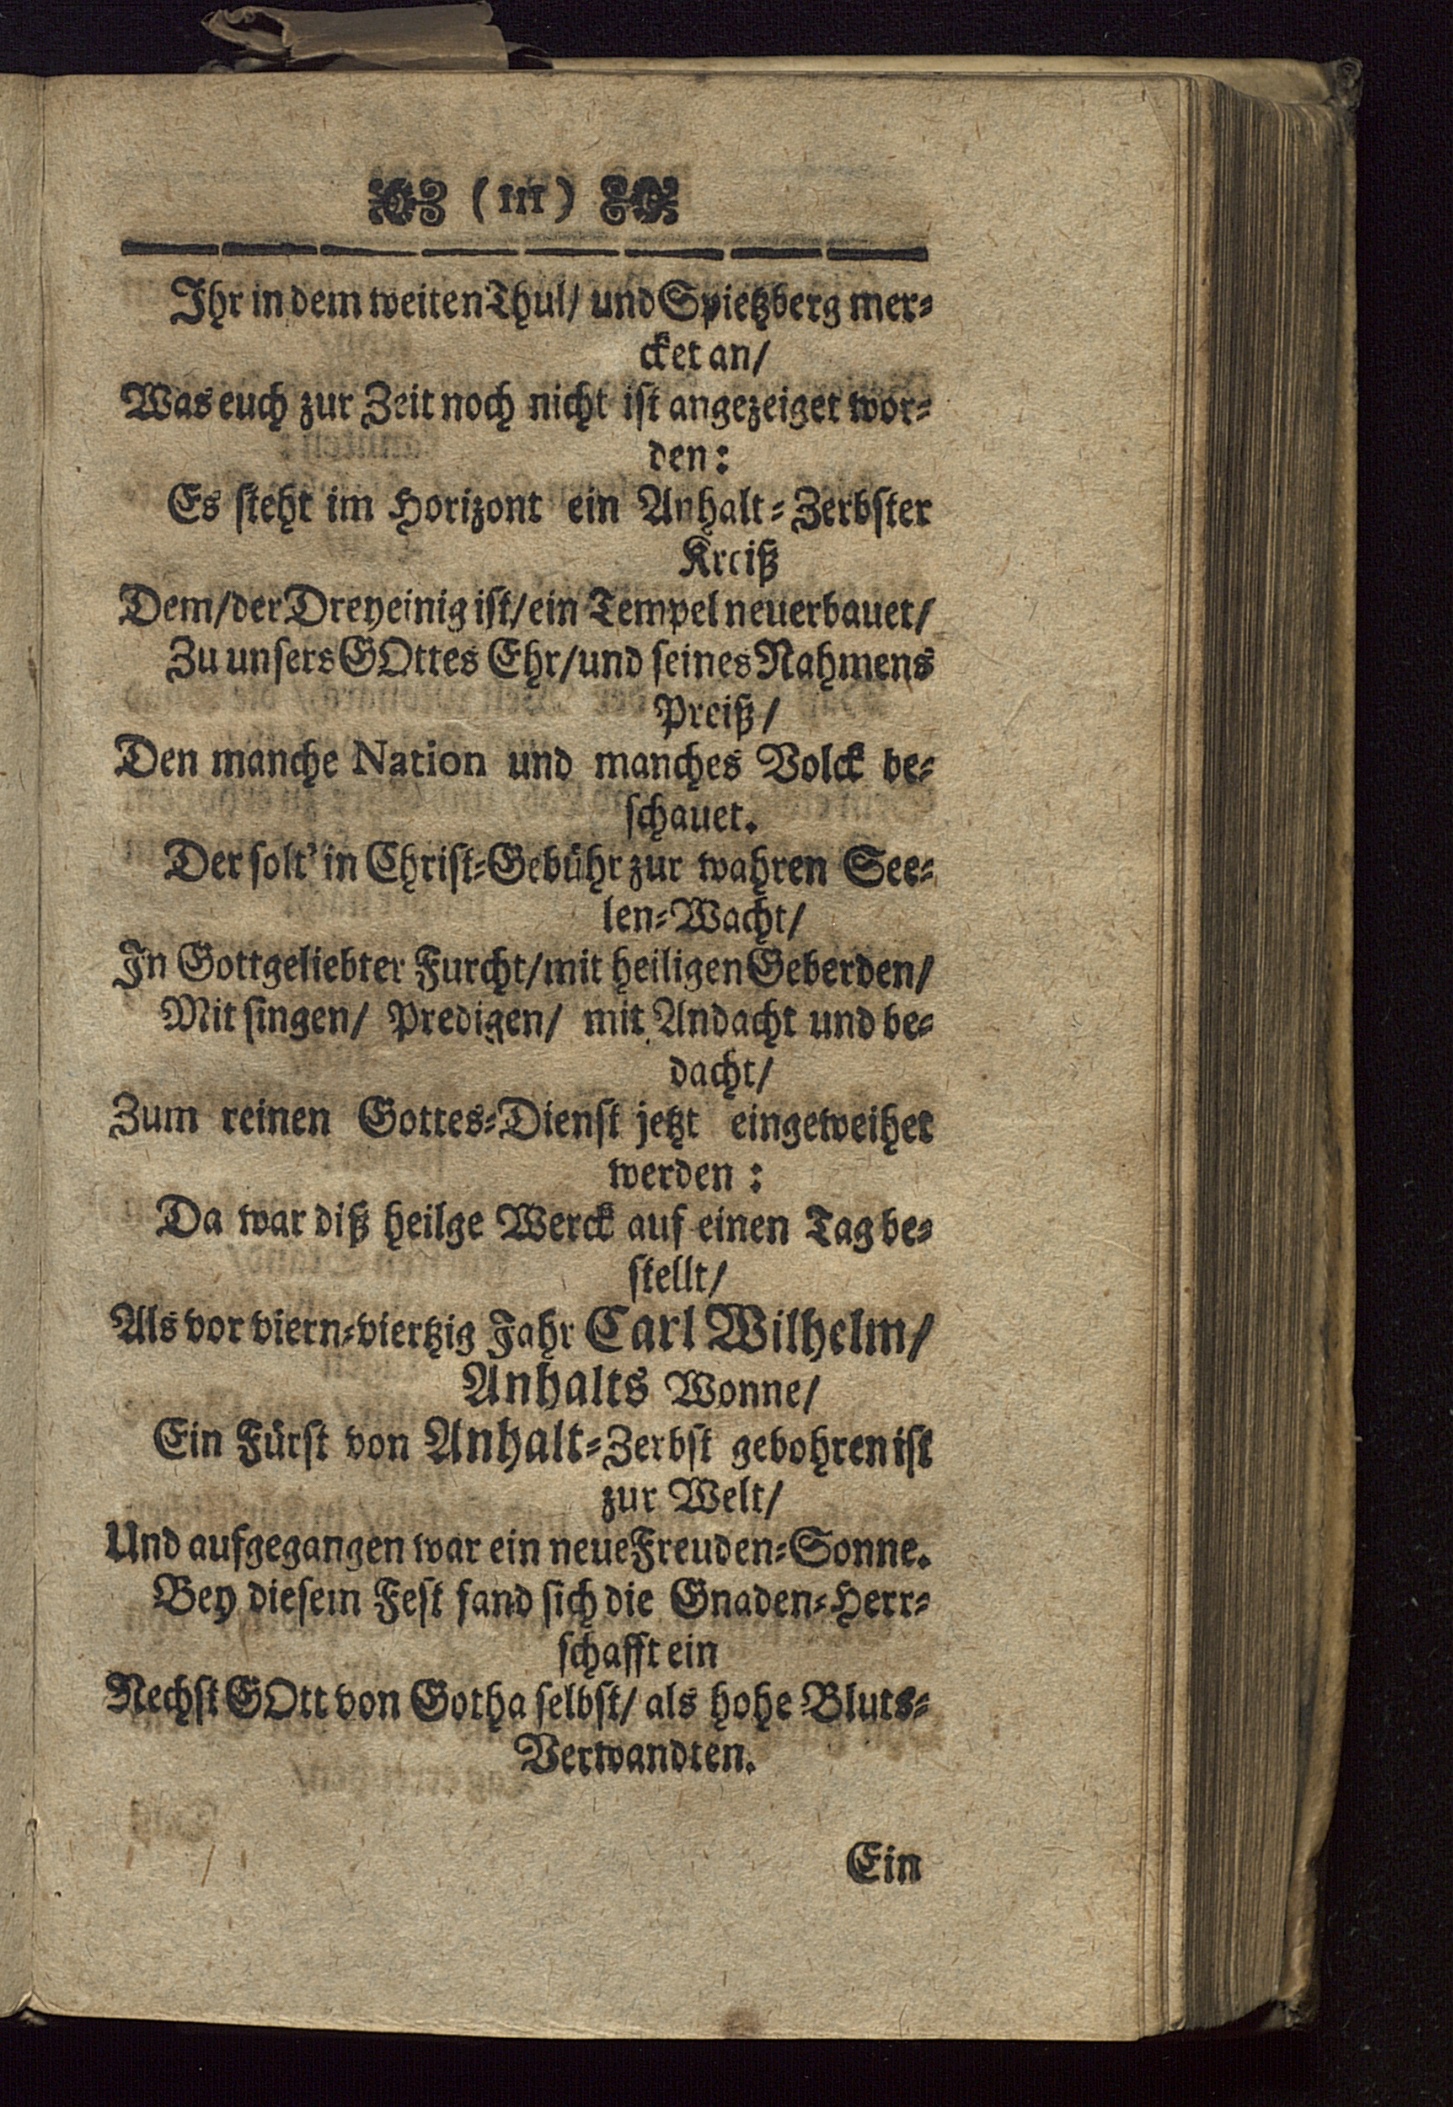 (III)
Ihr in dem weiten Thul/ und Spietzberg mer-
cket an/
Was euch zur Zeit noch nicht ist angezeiget wor-
den:
Es steht im Horizont ein Anhalt-Zerbster
Kreiß
Dem/der Dreyeinig ist/ein Tempel neuerbauet/
Zu unsers GOttes Ehr/und seines Nahmens
Preiß/
Den manche Nation und manches Volck be-
schauet.
Der solt' in Christ-Gebühr zur wahren See-
len-Wacht/
In Gottgeliebter Furcht/mit heiligen Geberden/
Mit singen/ Predigen/ mit Andacht und be-
dacht/
Zum reinen Gottes-Dienst jetzt eingeweihet
werden:
Da war diß heilge Werck auf einen Tag be-
stellt/
Als vor viern-viertzig Jahr Carl Wilhelm/
Anhalts Wonne/
Ein Fürst von Anhalt-Zerbst gebohren ist
zur Welt/
Und aufgegangen war ein neue Freuden-Sonne.
Bey diesem Fest fand sich die Gnaden-Herr-
schafft ein
Nechst GOtt von Gotha selbst/ als hohe Bluts-
Verwandten.
Ein